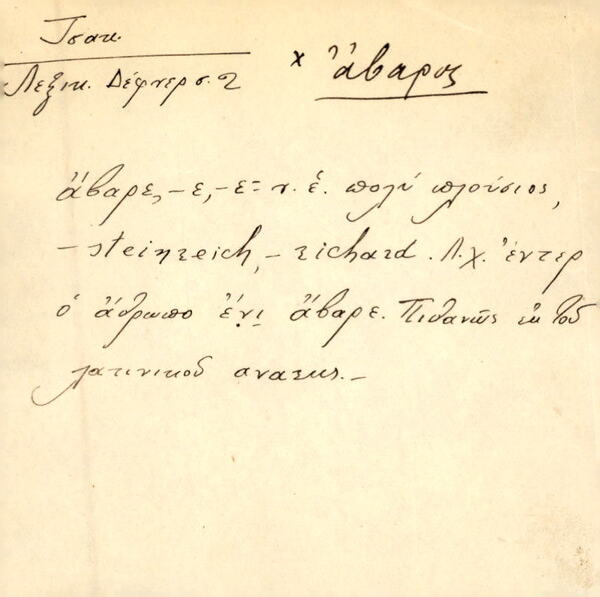 Τσακ.
Λεξικ. Δέφνερ σ. 2
x ἄβαρος
ἄβαρε, -ε, -ε = ν. ἑ. πολύ πλούσιος,
- steinreich, - richard. Π.χ. ἔντερ
ὁ ἄθρωπο ἔνι ἄβαρε. Πιθανῶς ἐκ τοῦ
λατινικοῦ avarus. -